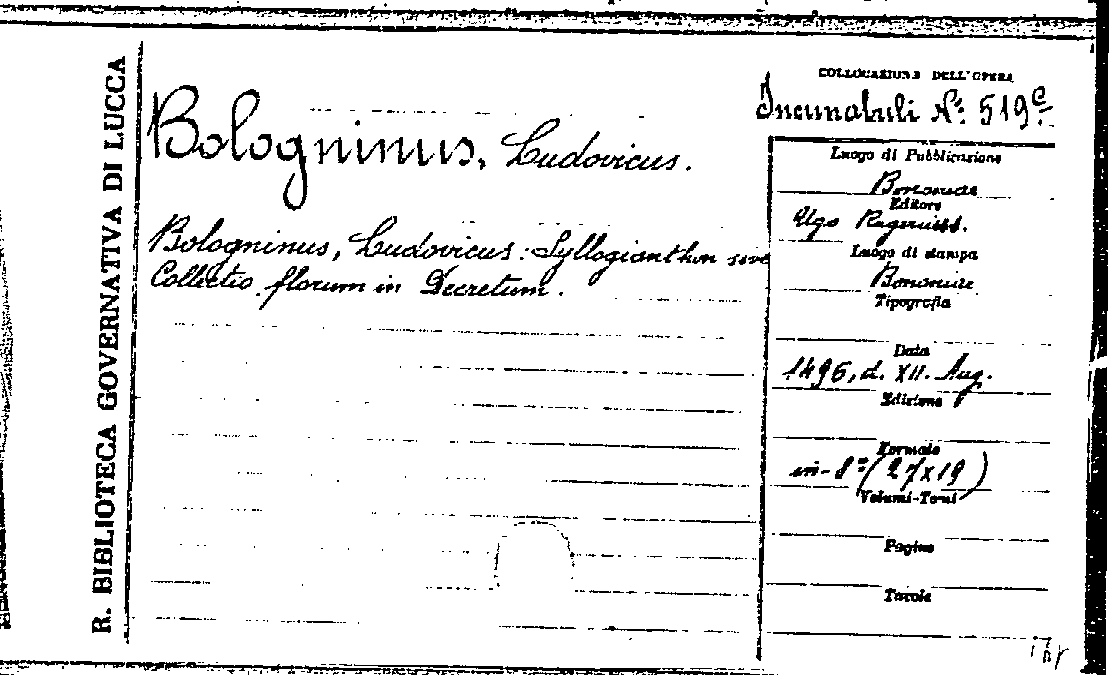 R. BIBLIOTECA GOVERNATIVA DI LUCCA
Bologninus, Ludovicus.
Bologninus, Ludovicus: Syllogianthon sive
Collectio florum in Decretum.
COLLOCAZIONE DELL'OPERA
Incunabuli Nº 519c.
Luogo di Pubblicazione
Bononiae
Editore
Ugo
Luogo di stampa
Bononiae
Tipografia
Data
1496, d. XII. Aug.
Edizione
Formato
in-8º (27x19)
Volumi-Tomi
Pagine
Tavole